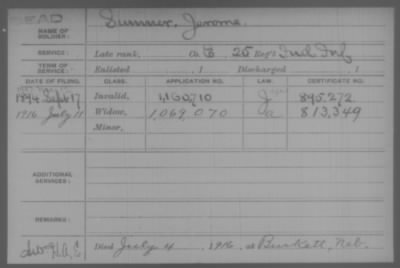 DEAD
NAME OF SOLDIER: Sumner, Jerome.
SERVICE: Late rank, Co. E, 25 Reg't Ind Inf
TERM OF SERVICE: Enlisted , 1 Discharged , 1
DATE OF FILING. CLASS. APPLICATION NO. LAW. CERTIFICATE NO.
1894 Sept 17 Invalid, 1,160,710 J 895,272
1916 July 11 Widow, 1,069,070 a 813,349
Minor,
ADDITIONAL SERVICES:
REMARKS:
Died July 4 1916, at Burkett, Neb.